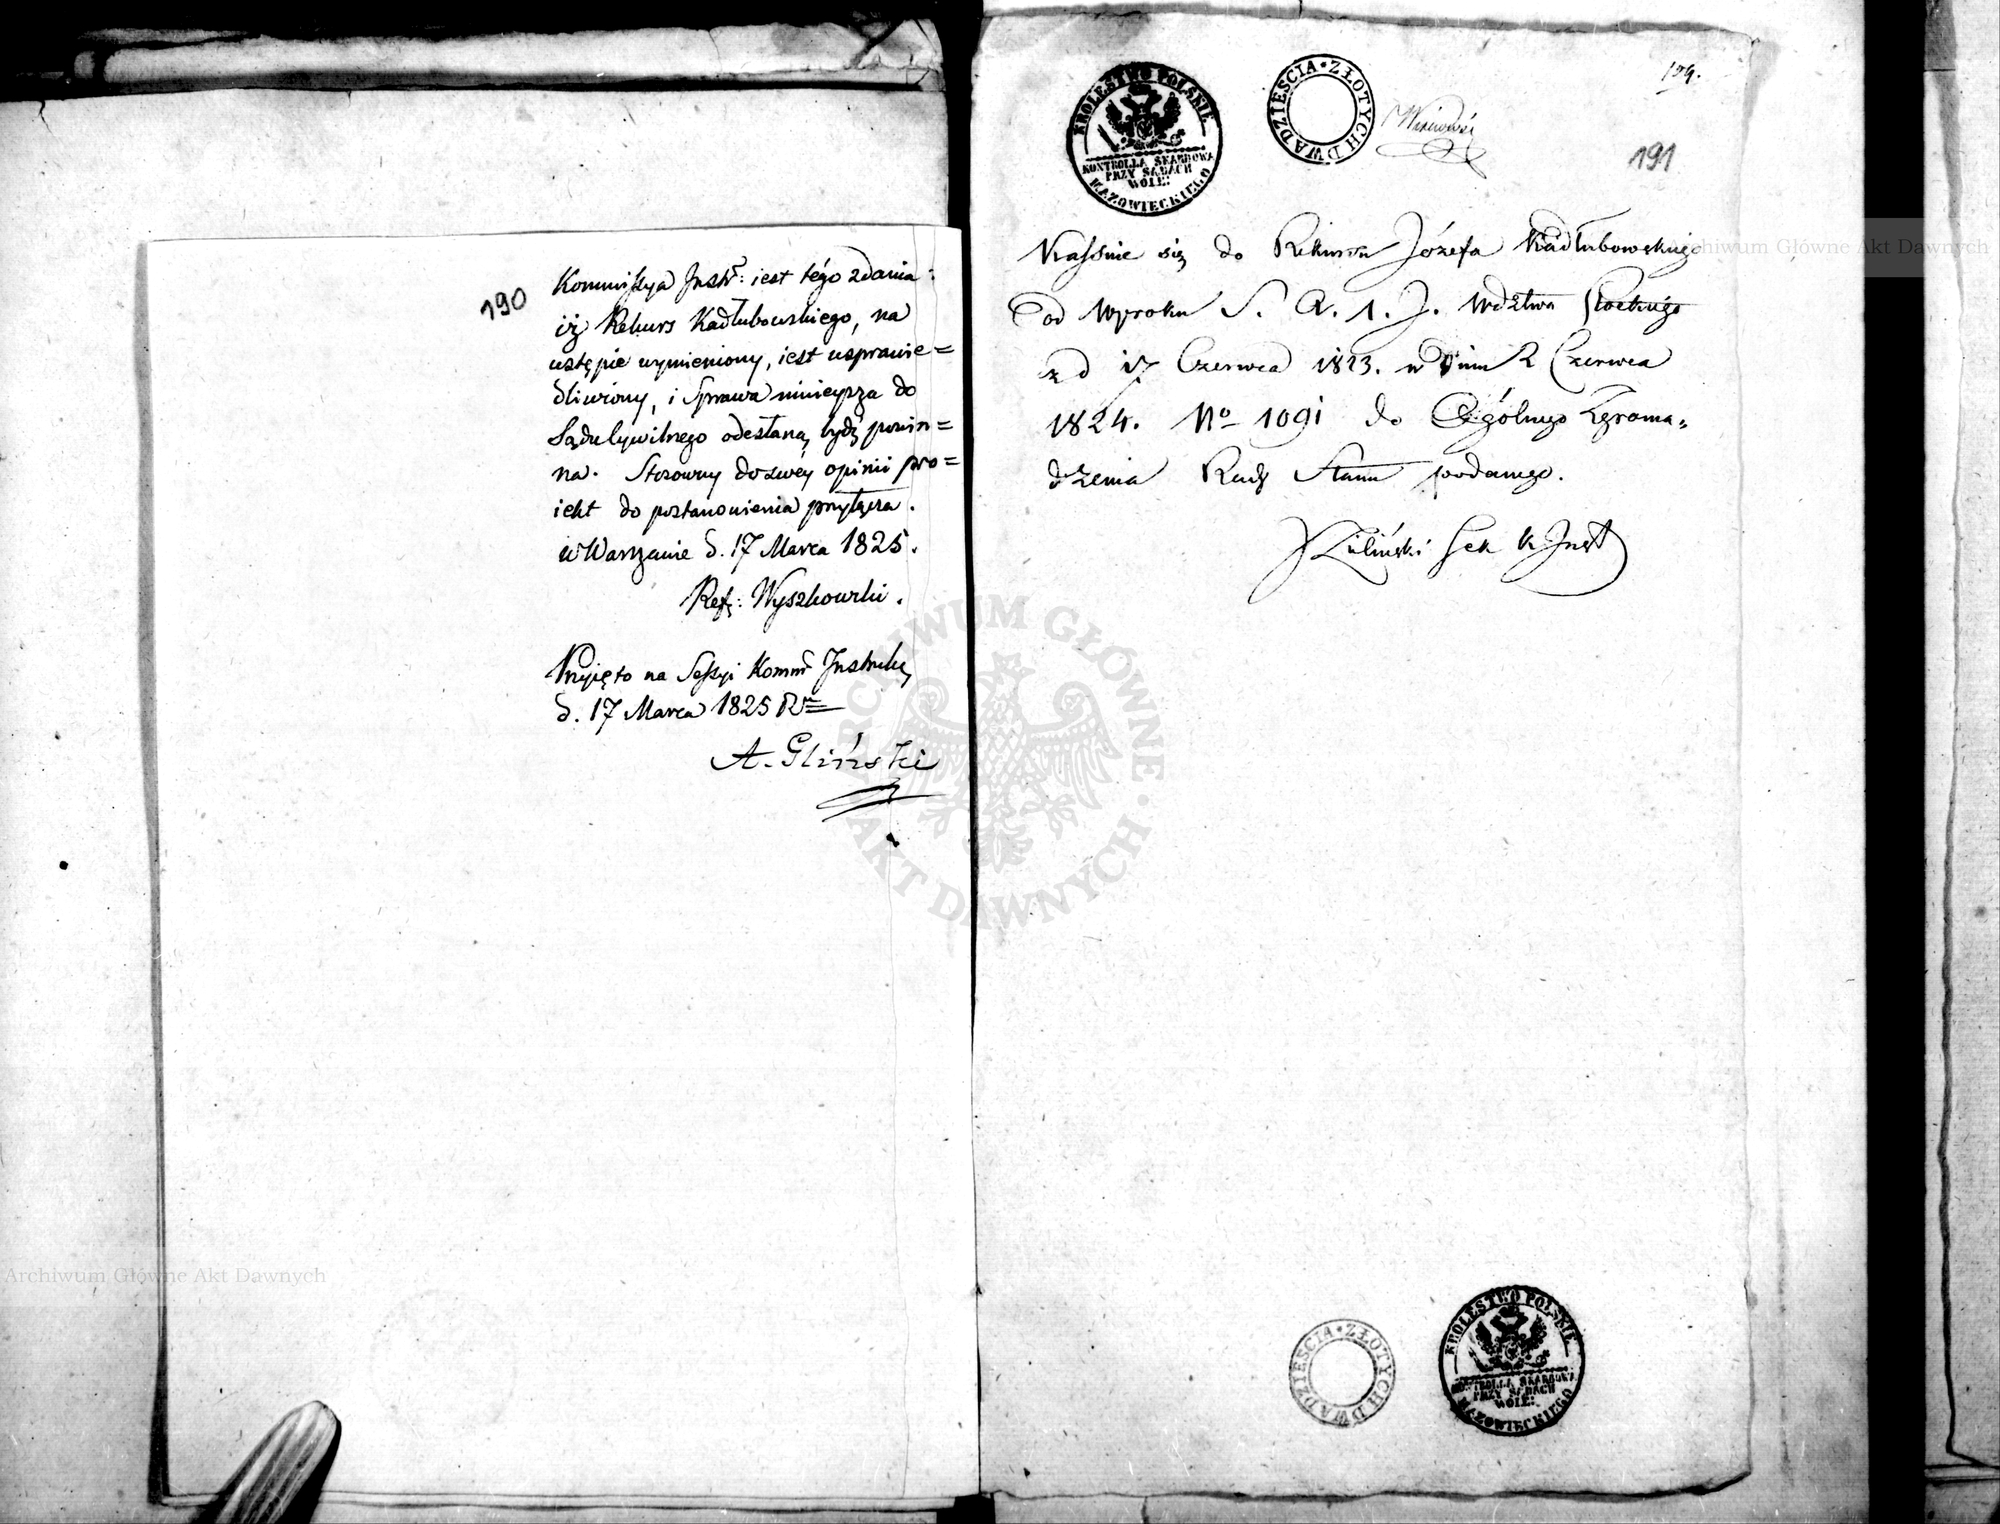 190
Kommissya Instr: iest tego zdania:
iż Rekurs Kadłubowskiego, na
wstępie wymieniony, iest usprawie=
dliwiony, i Sprawa ninieysza do
Sądu Cywilnego odesłaną bydź powin=
na. Stosowny do swéy opinii pro=
iekt do postanowienia przyłącza.
w Warszawie d. 17 Marca 1825.
Ref: Wyszkowski.
Przyięto na Sessyi Komm Instrukc
d. 17 Marca 1825 R
A. Gliński
KRÓLESTWO POLSKIE
KONTROLLA SKARBOWA
PRZY SĄDACH
WOIE:
MAZOWIECKIEGO
DWADZIEŚCIA ZŁOTYCH
191
Kassuie się do Rekursu Józefa Kadłubowskiego
od Wyroku S. A. 1. J. Wdztwa Płockiego
z d 17 Czerwca 1823. w dniu 2 Czerwca
1824. No 1091 do Ogólnego Zgroma=
dzenia Rady Stanu podanego.
Zieliński Sek K. Inst
DWADZIEŚCIA ZŁOTYCH
KRÓLESTWO POLSKIE
KONTROLLA SKARBOWA
PRZY SĄDACH
WOIE:
MAZOWIECKIEGO
ARCHIWUM GŁÓWNE AKT DAWNYCH
Archiwum Główne Akt Dawnych
Archiwum Główne Akt Dawnych